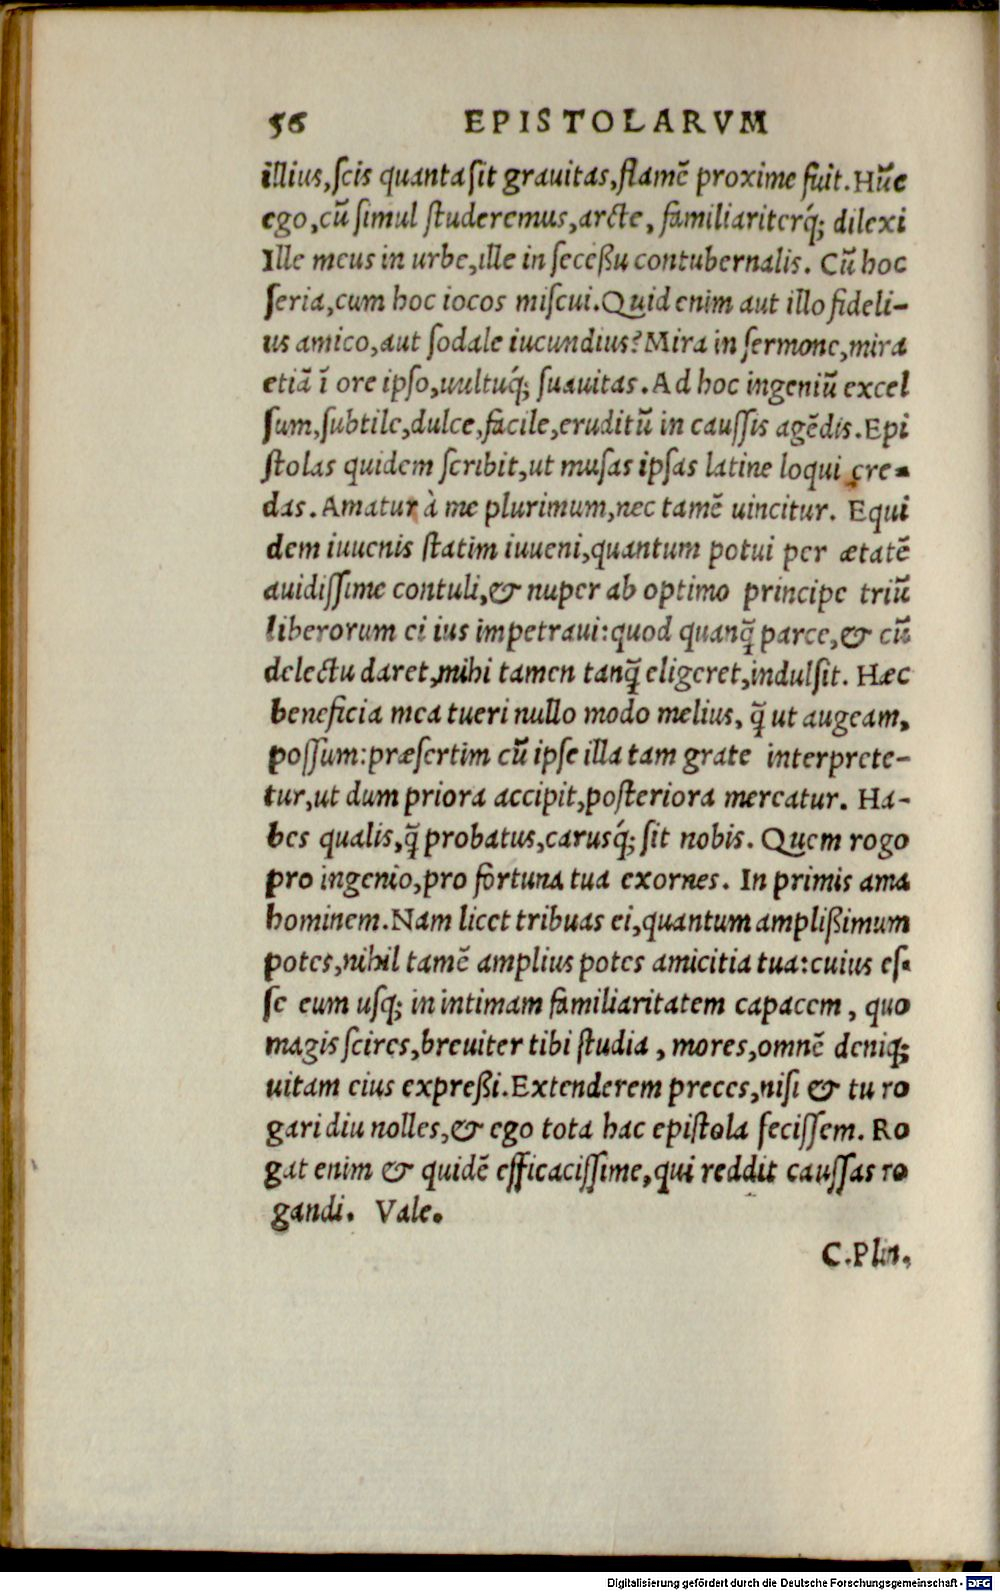 56 EPISTOLARVM
illius, scis quanta sit grauitas, flamē proxime fuit. Hūc
ego, cū simul studeremus, arcte, familiariterq́; dilexi
Ille meus in urbe, ille in seceßu contubernalis. Cū hoc
seria, cum hoc iocos miscui. Quid enim aut illo fideli-
us amico, aut sodale iucundius? Mira in sermone, mira
etiā ī ore ipso, uultuq́; suauitas. Ad hoc ingeniū excel
sum, subtile, dulce, facile, eruditū in caussis agēdis. Epi
stolas quidem scribit, ut musas ipsas latine loqui cre-
das. Amatur à me plurimum, nec tamē uincitur. Equi
dem iuuenis statim iuueni, quantum potui per ætatē
auidissime contuli, & nuper ab optimo principe triū
liberorum ei ius impetraui: quod quanq̄ parce, & cū
delectu daret, mihi tamen tanq̄ eligeret, indulsit. Hæc
beneficia mea tueri nullo modo melius, q̄ ut augeam,
possum: præsertim cū ipse illa tam grate interprete-
tur, ut dum priora accipit, posteriora mereatur. Ha-
bes qualis, q̄ probatus, carusq́; sit nobis. Quem rogo
pro ingenio, pro fortuna tua exornes. In primis ama
hominem. Nam licet tribuas ei, quantum amplißimum
potes, nihil tamē amplius potes amicitia tua: cuius es-
se eum usq; in intimam familiaritatem capacem, quo
magis scires, breuiter tibi studia, mores, omnē deniq;
uitam eius expreßi. Extenderem preces, nisi & tu ro
gari diu nolles, & ego tota hac epistola fecissem. Ro
gat enim & quidē efficacissime, qui reddit caussas ro
gandi. Vale.
C. Plin.
Digitalisierung gefördert durch die Deutsche Forschungsgemeinschaft - DFG